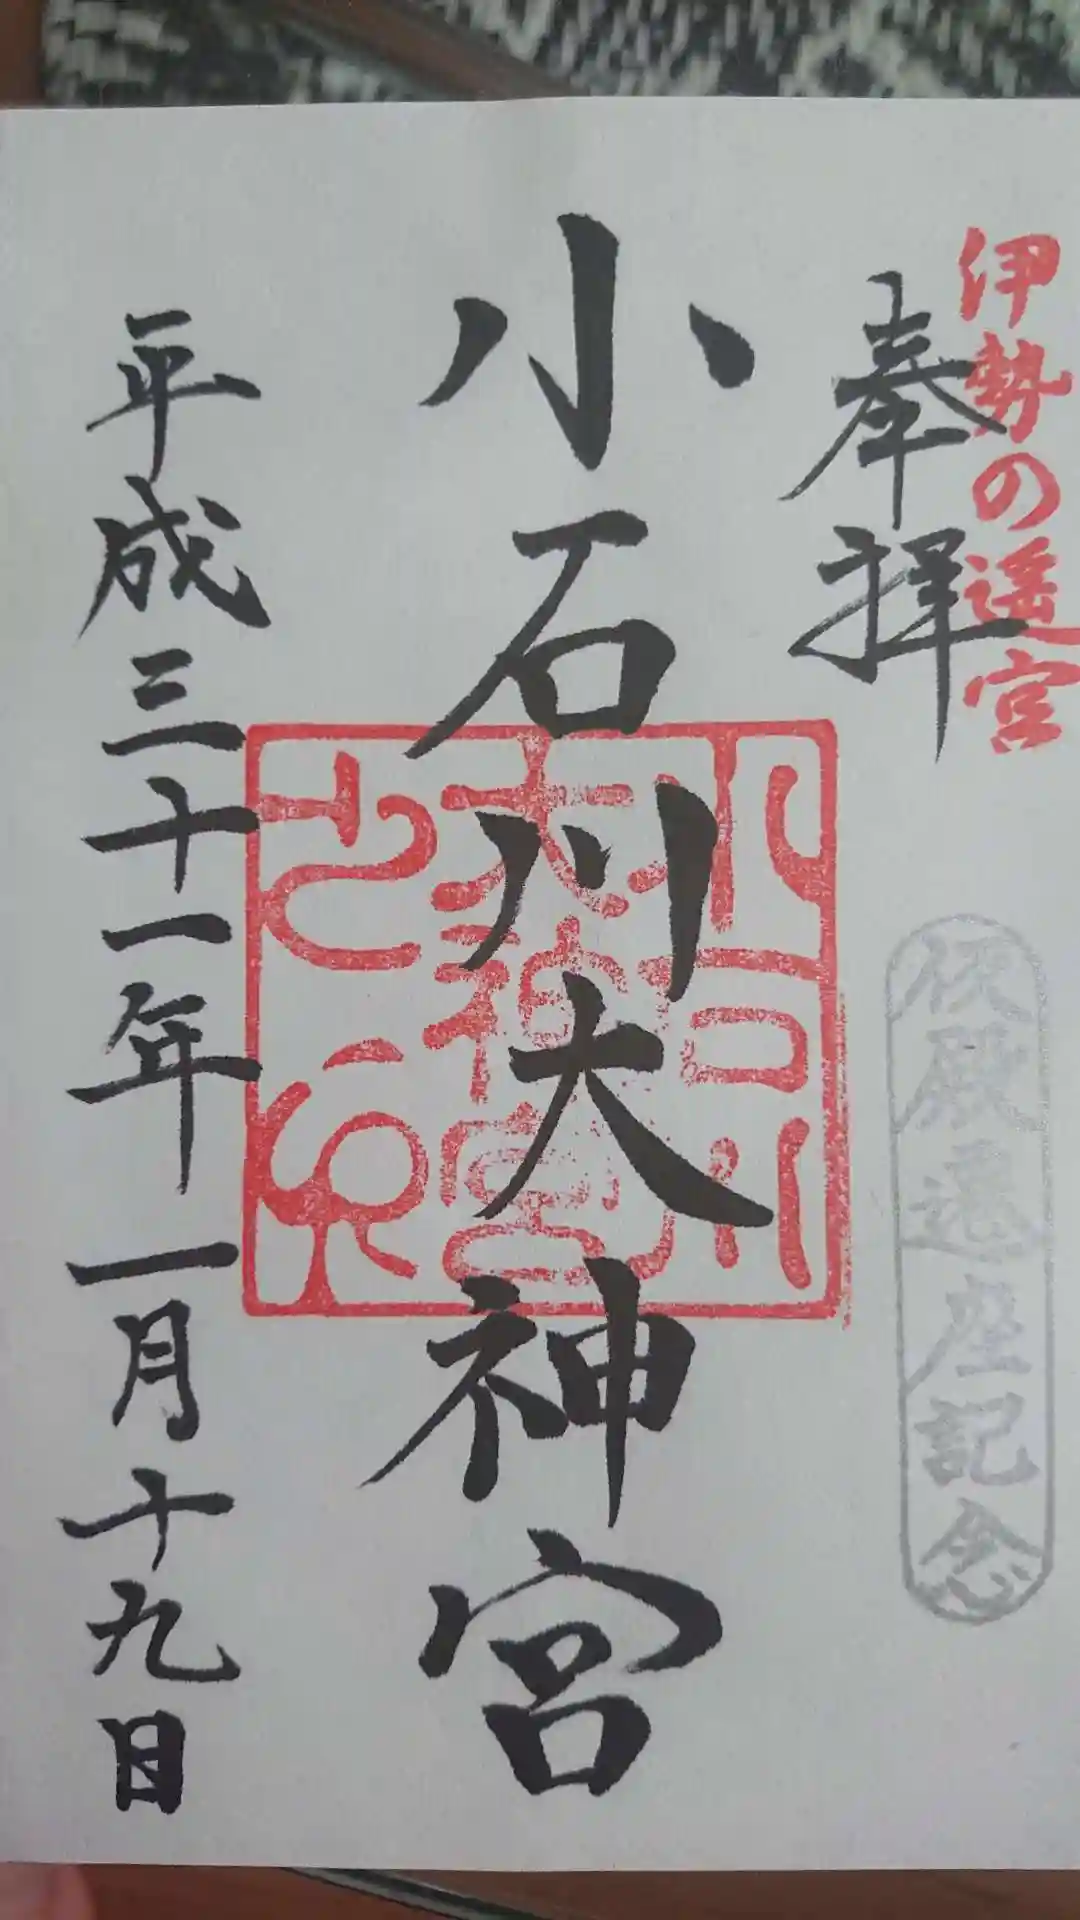 伊勢の遥宮
奉拝
仮殿遷座記念
小石川大神宮
小石川
大神宮
平成三十一年一月十九日